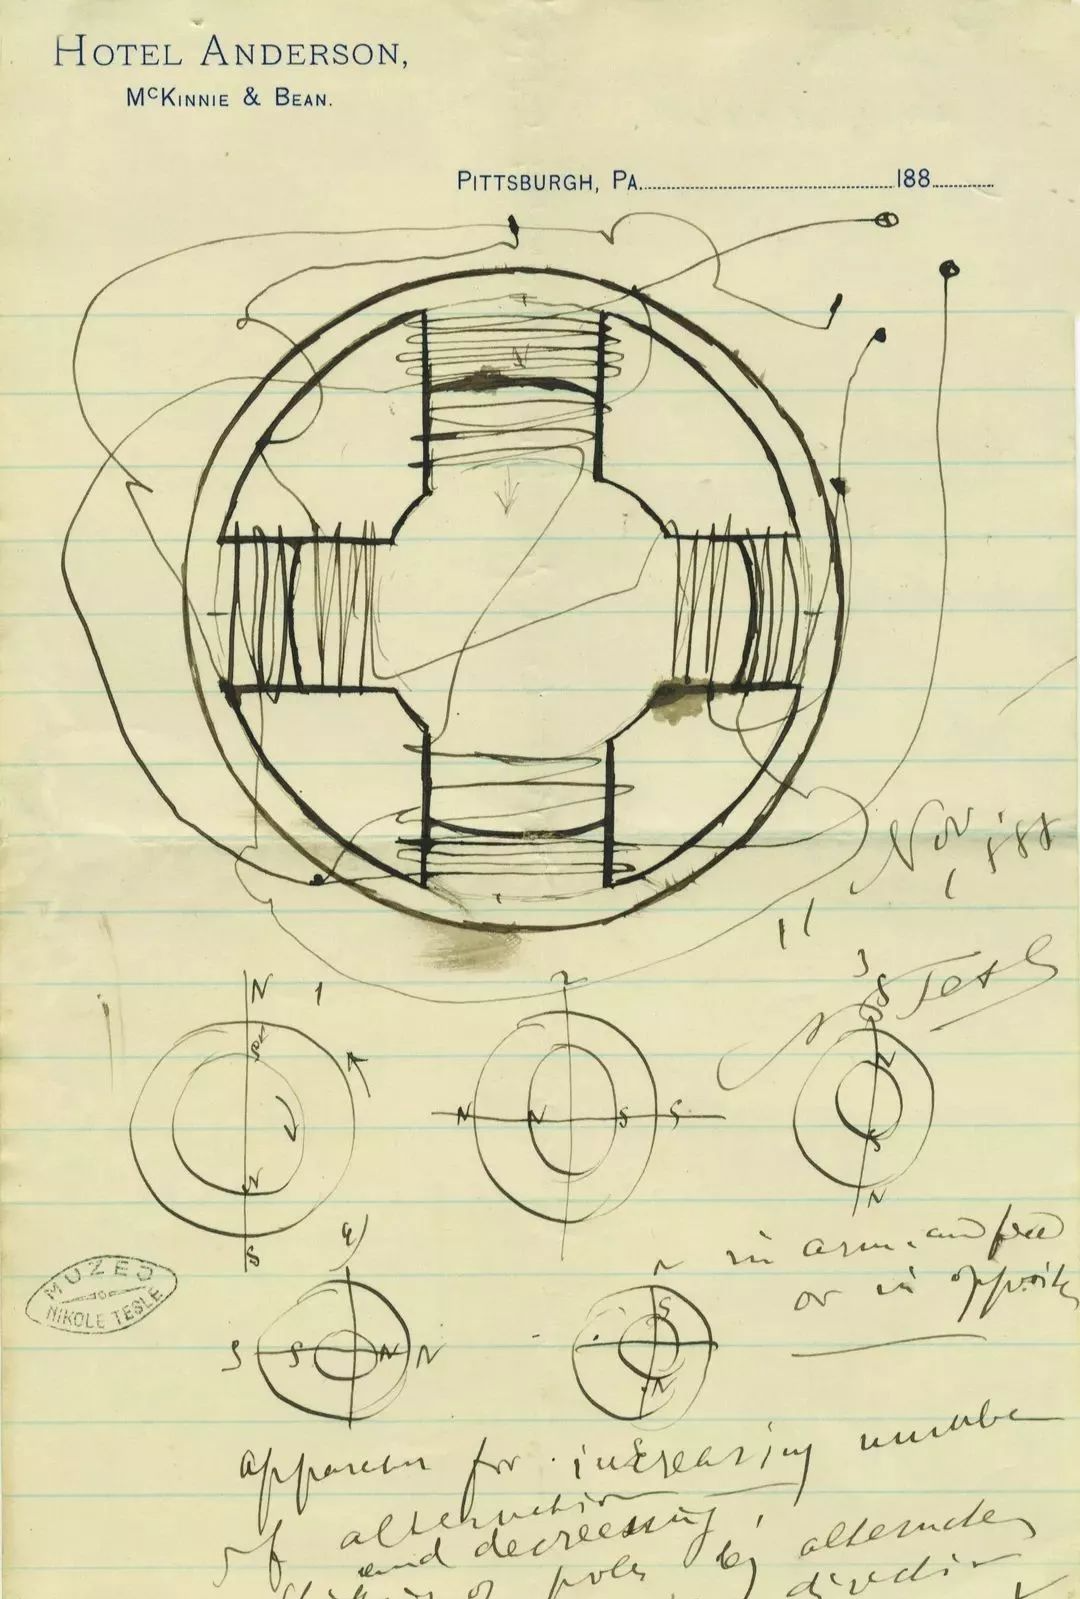 HOTEL ANDERSON,
McKINNIE & BEAN.
PITTSBURGH, PA. 188
N
11 Nov '88
N 1
2
3
S Tesla
N
S
N N S S
N
S
N
S
4)
in arm. and field
or in opposite
N
S
S S N N
N
MUZEJ
NIKOLE TESLE
for increasing number
of alternations
and decreasing
of poles by alternate
direction